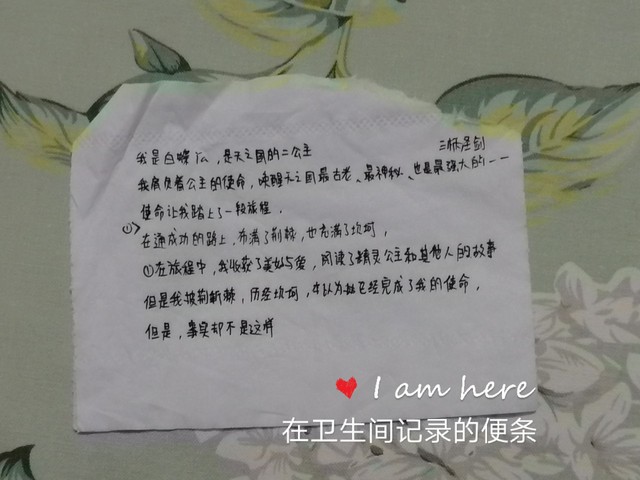 我是白蝶仏，是天之国的二公主
三怀圣剑
我肩负着公主的使命，唤醒天之国最古老、最神秘、也是最强大的一一
使命让我踏上了一段旅程．
②>
在通成功的路上，布满了荆棘，也充满了坎坷，
①在旅程中，我收获了美好与爱，阅读了精灵公主和其他人的故事
但是我披荆斩棘，历经坎坷，本以为 已经完成了我的使命，
但是，事实却不是这样
I am here
在卫生间记录的便条